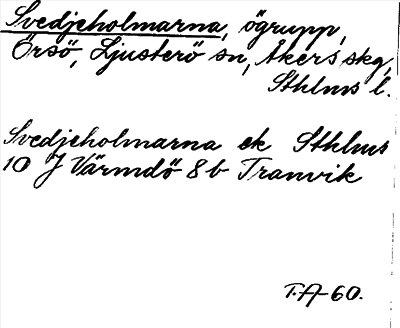 Svedjeholmarna, ögrupp,
Örsö, Ljusterö sn, Åkers skg,
Sthlms l.
Svedjeholmarna ek Sthlms
10 J Värmdö 8b Tranvik
T.A-60.